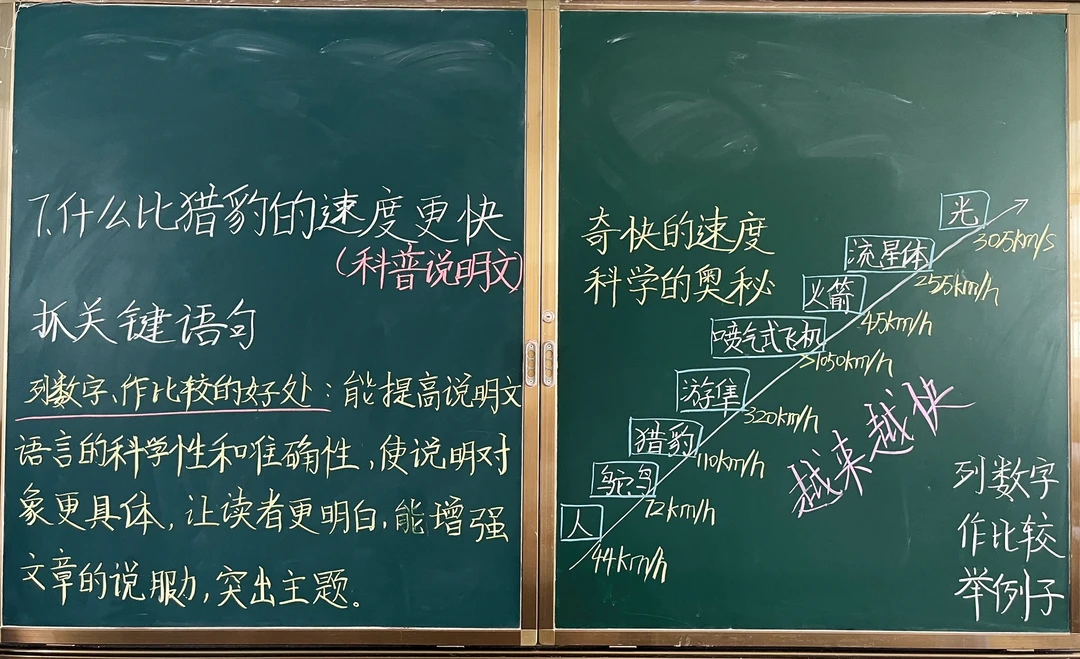 7.什么比猎豹的速度更快
(科普说明文)
抓关键语句
列数字、作比较的好处：能提高说明文
语言的科学性和准确性，使说明对
象更具体，让读者更明白，能增强
文章的说服力，突出主题。
奇快的速度
科学的奥秘
光
305km/s
流星体
255km/h
火箭
45km/h
喷气式飞机
>1050km/h
游隼
320km/h
猎豹
110km/h
鸵鸟
72km/h
人
44km/h
越来越快
列数字
作比较
举例子